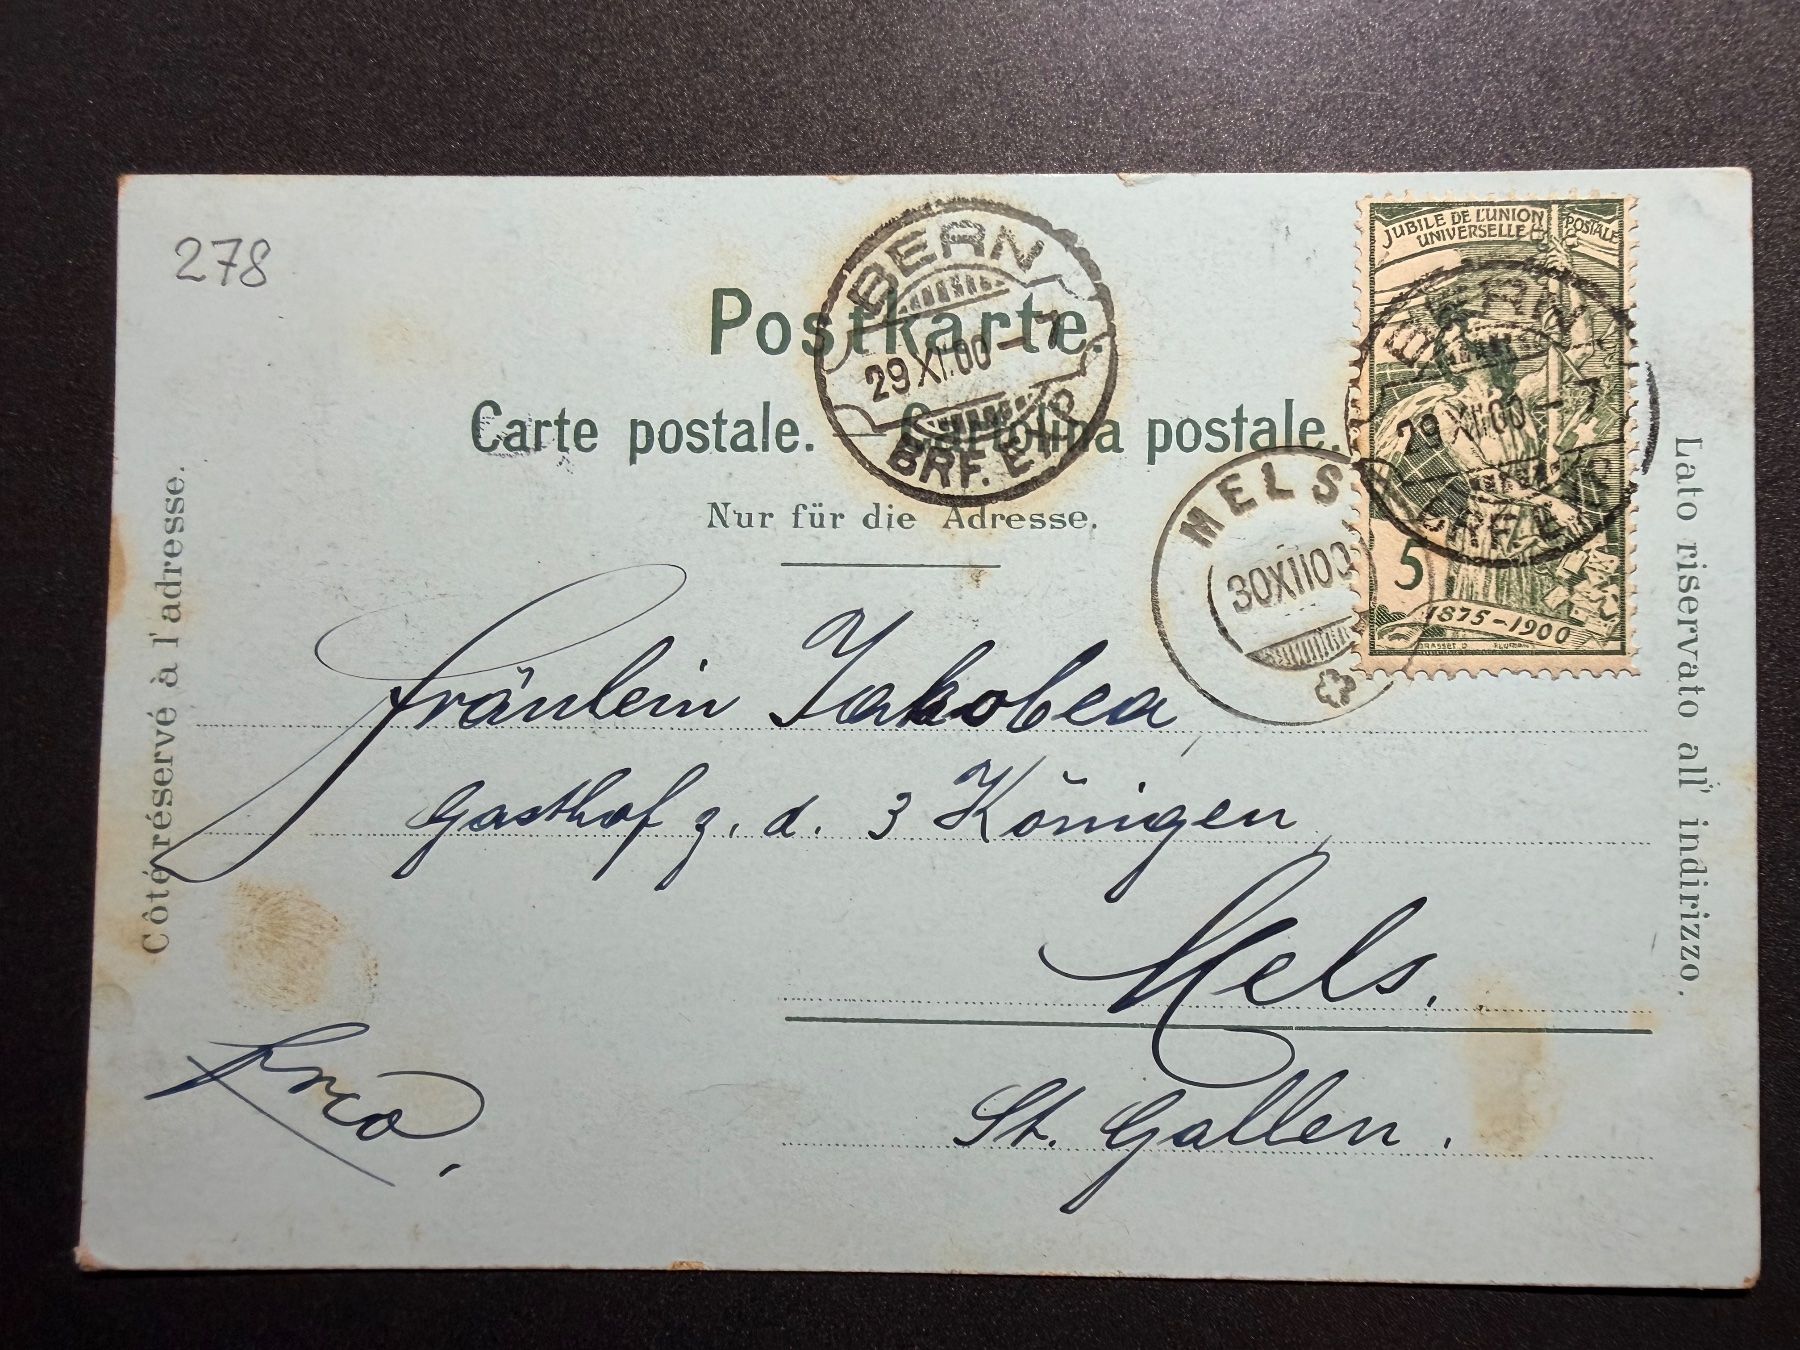 278
JUBILÉ DE L'UNION POSTALE
UNIVERSELLE
BERN
29.XII.00-7
BRF. EXP.
Postkarte.
BERN
29.XII.00-7
BRF. EXP.
Carte postale. — Cartolina postale.
Nur für die Adresse.
MELS
30.XII.00
5
1875-1900
GRASSET D
Côté réservé à l'adresse.
Lato riservato all' indirizzo.
Fräulein Jakobea
Gasthof z. d. 3 Königen
Mels.
St. Gallen.